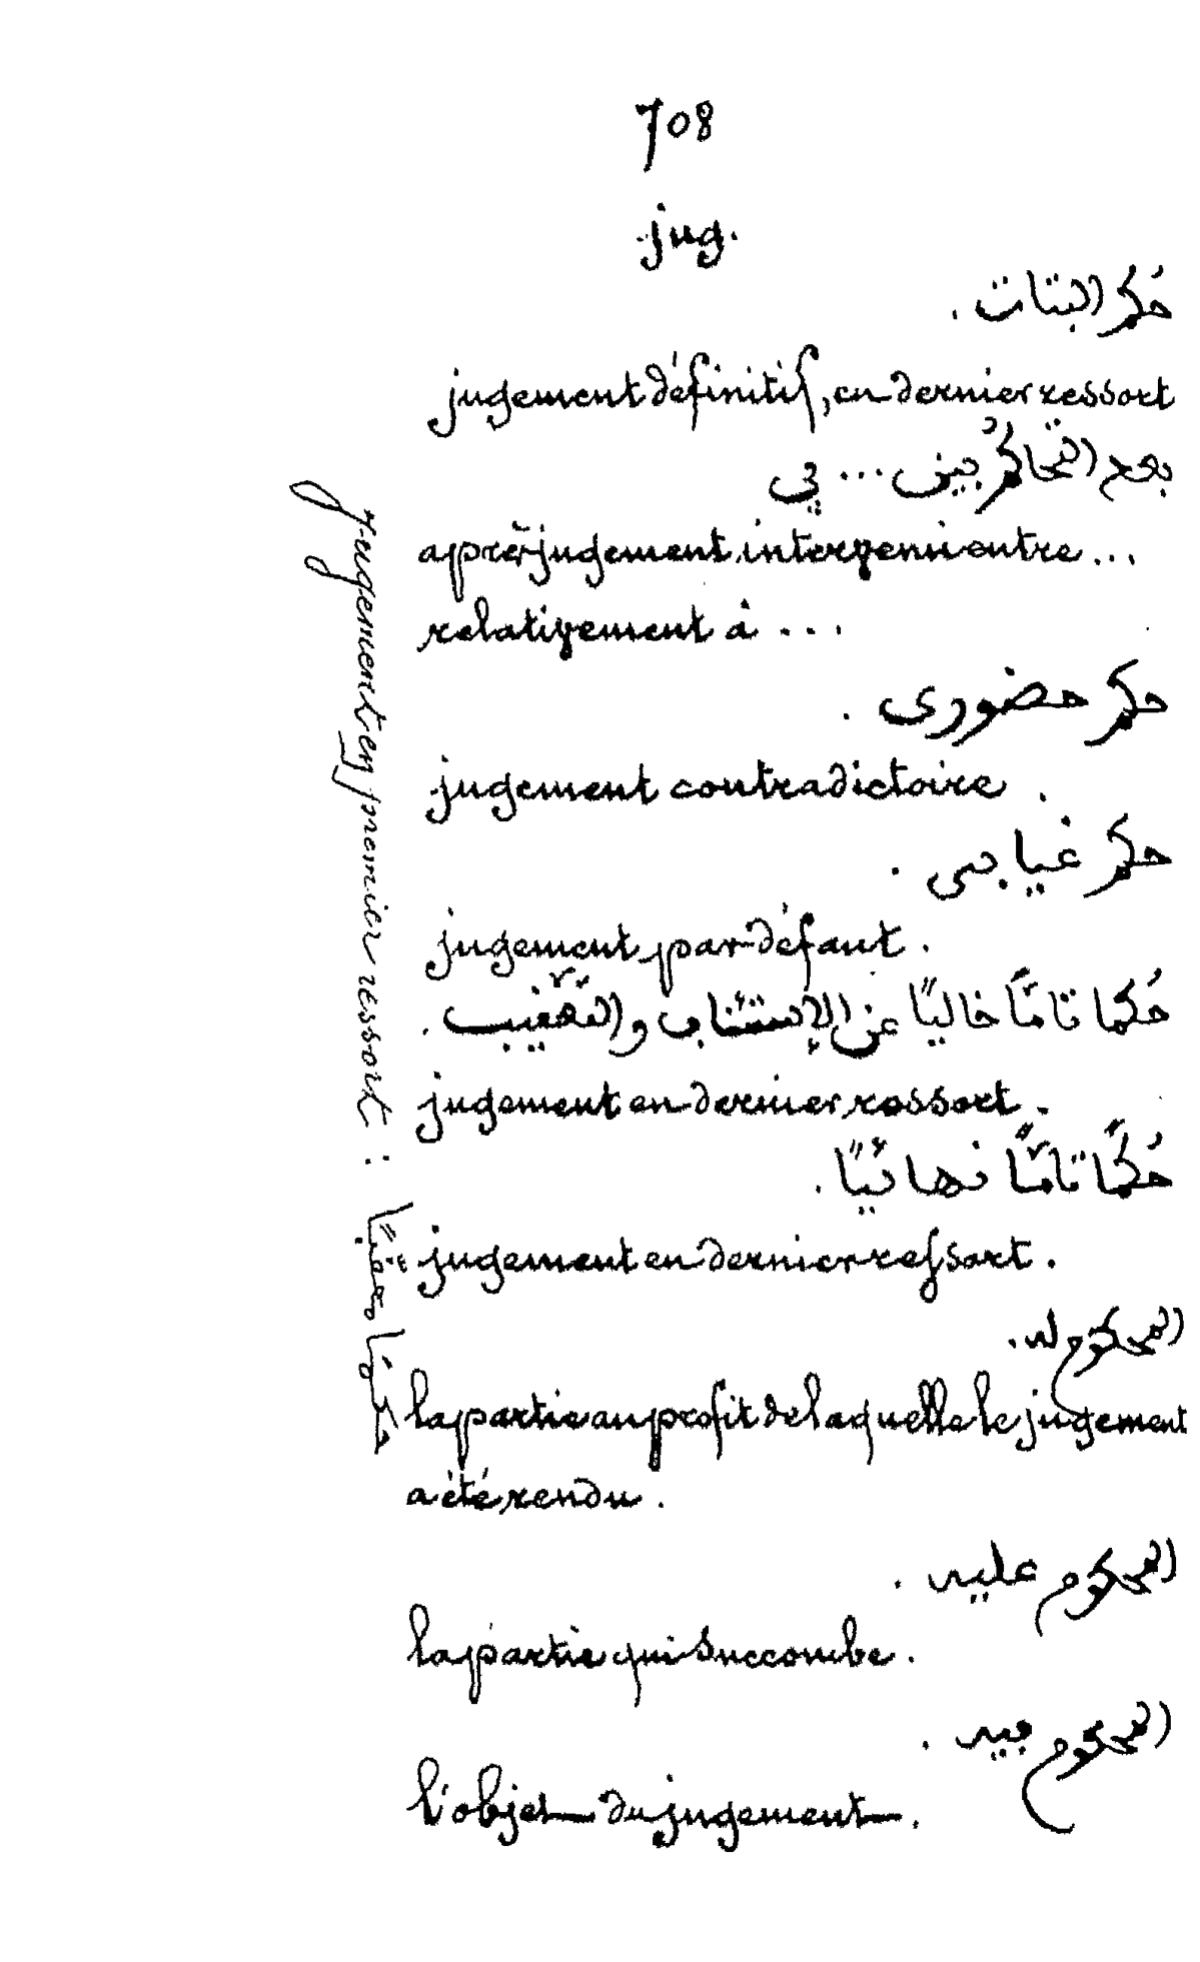 708
jug.
حُكم البتات .
jugement définitif, en dernier ressort
بعد التحاكُم بين ... في
après jugement intervenu entre ...
relativement à ...
حكم حضورى .
jugement contradictoire .
حكم غيابى .
jugement par défaut .
حُكما تامًّا خاليًا عن الإستئناف والتعقيب .
jugement en dernier ressort .
حُكمًا تامًّا نهائيًّا .
jugement en dernier ressort .
المحكوم له .
la partie au profit de laquelle le jugement
a été rendu .
المحكوم عليه .
la partie qui succombe .
المحكوم فيه .
l'objet du jugement .
Jugement en premier ressort :